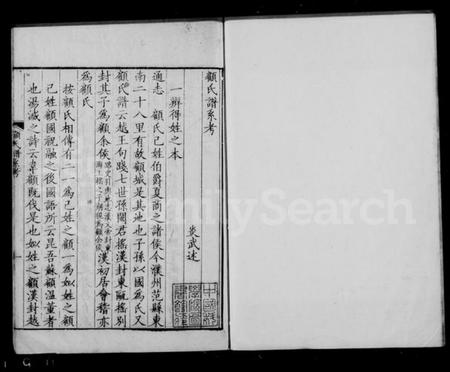 顧氏譜系考
炎武述
一辨得姓之本
通志 顧氏己姓伯爵夏商之諸侯今濮州范縣東
南二十八里有故顧城是其地也子孫以國為氏又
顧氏譜云越王句踐七世孫閩君搖漢封東甌搖別
封其子為顧余侯漢初居會稽亦
為顧氏
按顧氏相傳有二一為己姓之顧一為姒姓之顧
己姓顧國祝融之後國語所云昆吾蘇顧溫董者
也湯滅之詩云韋顧既伐是也姒姓之顧漢封越
顧氏譜系考
FamilySearch